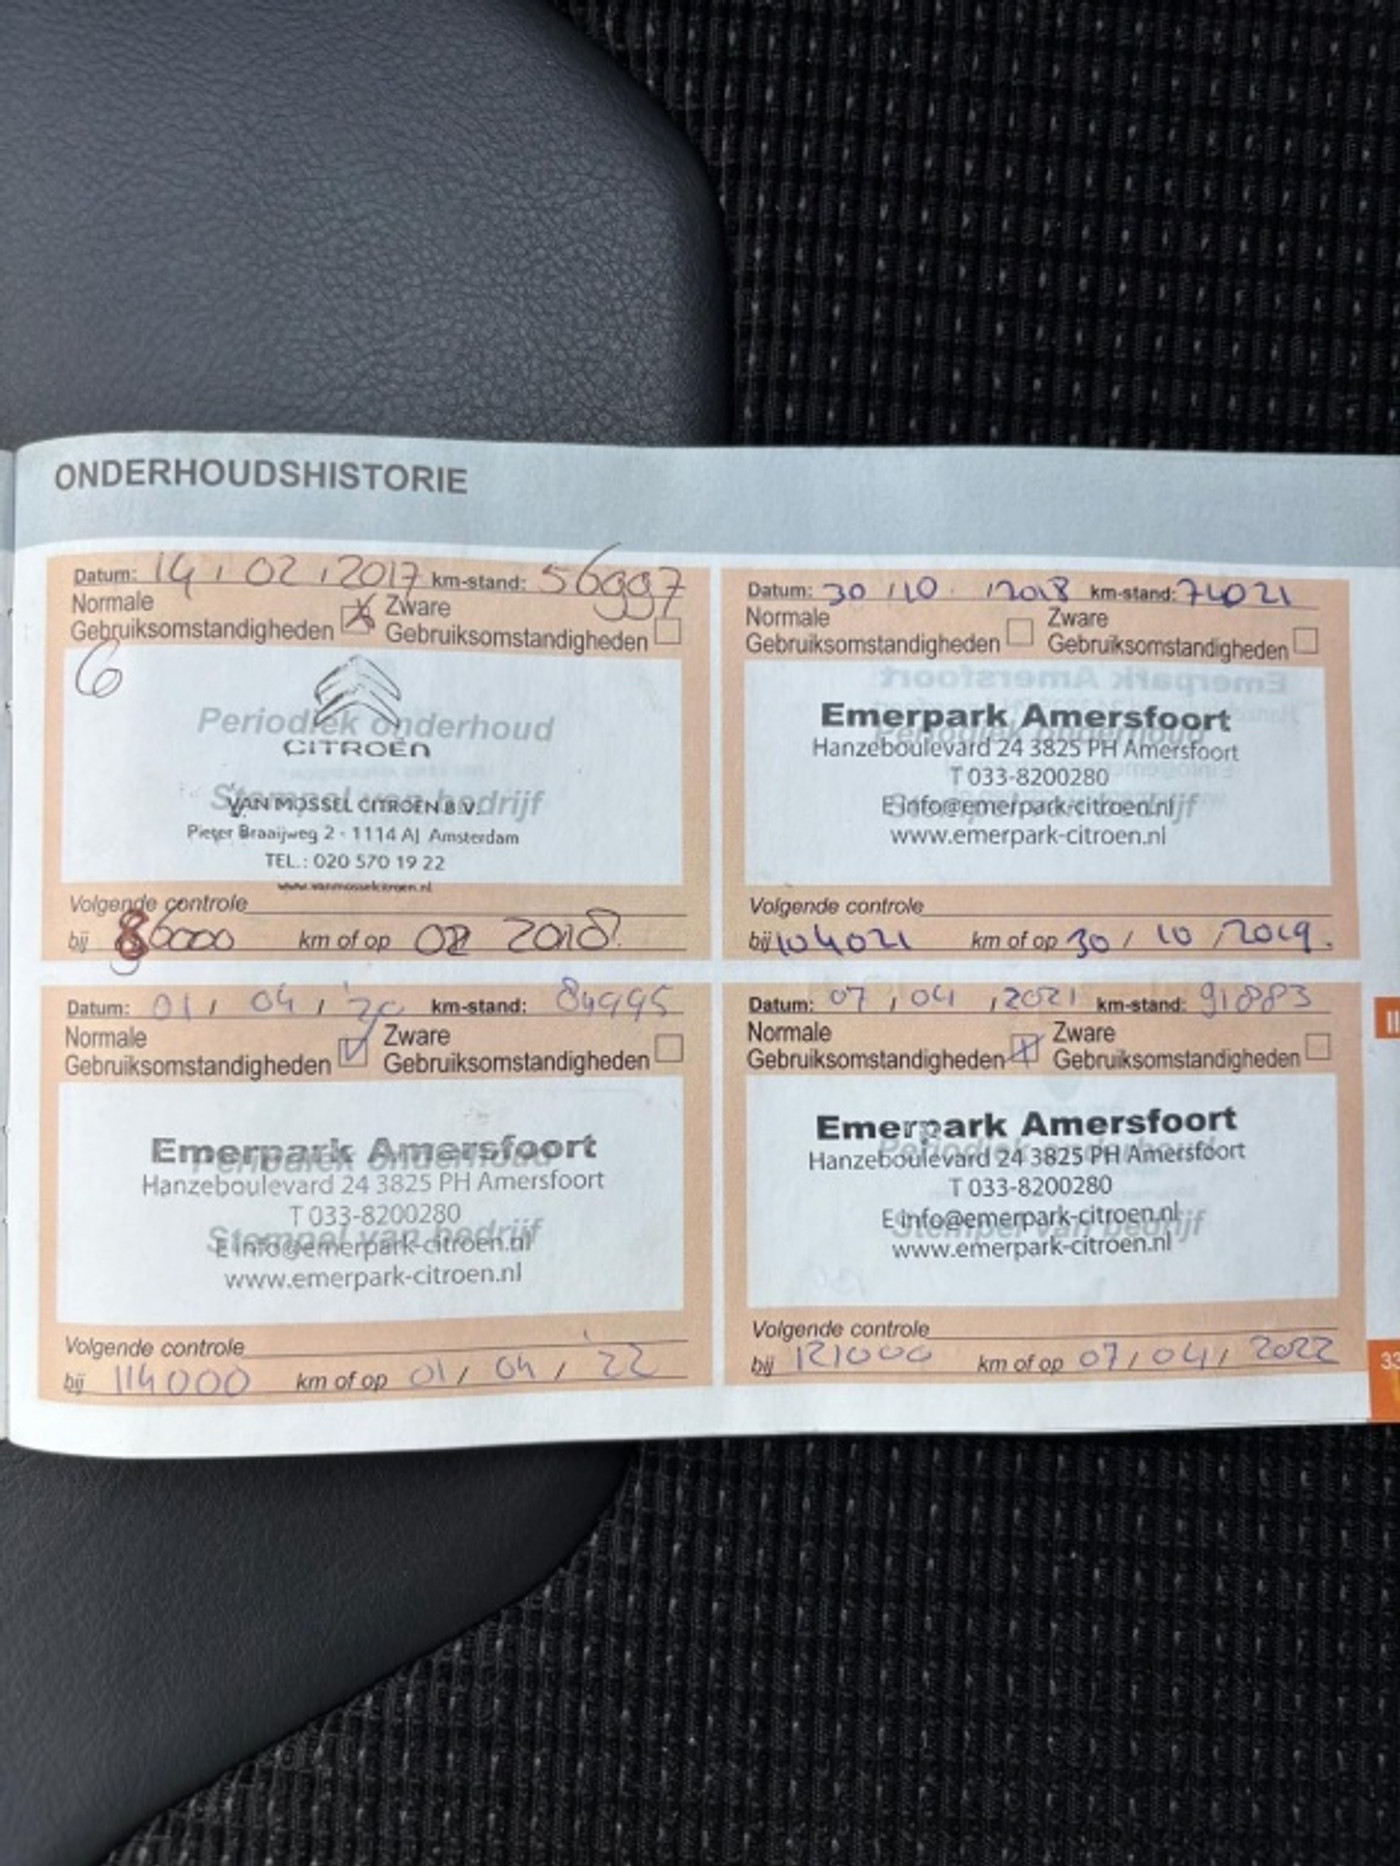 ONDERHOUDSHISTORIE
Datum: 14 / 02 / 2017 km-stand: 56997
Normale
Gebruiksomstandigheden
Zware
Gebruiksomstandigheden
6
Periodiek onderhoud
CITROËN
Stempel van bedrijf
VAN MOSSEL CITROËN B.V.
Pieter Braaijweg 2 - 1114 AJ Amsterdam
TEL.: 020 570 19 22
www.vanmosselcitroen.nl
Volgende controle
bij 86000 km of op 02 2018
Datum: 30 / 10 / 2018 km-stand: 74021
Normale
Gebruiksomstandigheden
Zware
Gebruiksomstandigheden
Emerpark Amersfoort
Periodiek onderhoud
Hanzeboulevard 24 3825 PH Amersfoort
T 033-8200280
Stempel van bedrijf
E info@emerpark-citroen.nl
www.emerpark-citroen.nl
Volgende controle
bij 104021 km of op 30 / 10 / 2019.
Datum: 01 / 04 / '20 km-stand: 84995
Normale
Gebruiksomstandigheden
Zware
Gebruiksomstandigheden
Emerpark Amersfoort
Periodiek onderhoud
Hanzeboulevard 24 3825 PH Amersfoort
T 033-8200280
Stempel van bedrijf
E info@emerpark-citroen.nl
www.emerpark-citroen.nl
Volgende controle
bij 114000 km of op 01 / 04 / '22
Datum: 07 / 04 / 2021 km-stand: 91883
Normale
Gebruiksomstandigheden
Zware
Gebruiksomstandigheden
Emerpark Amersfoort
Periodiek onderhoud
Hanzeboulevard 24 3825 PH Amersfoort
T 033-8200280
Stempel van bedrijf
E info@emerpark-citroen.nl
www.emerpark-citroen.nl
Volgende controle
bij 121000 km of op 07 / 04 / 2022
II
33